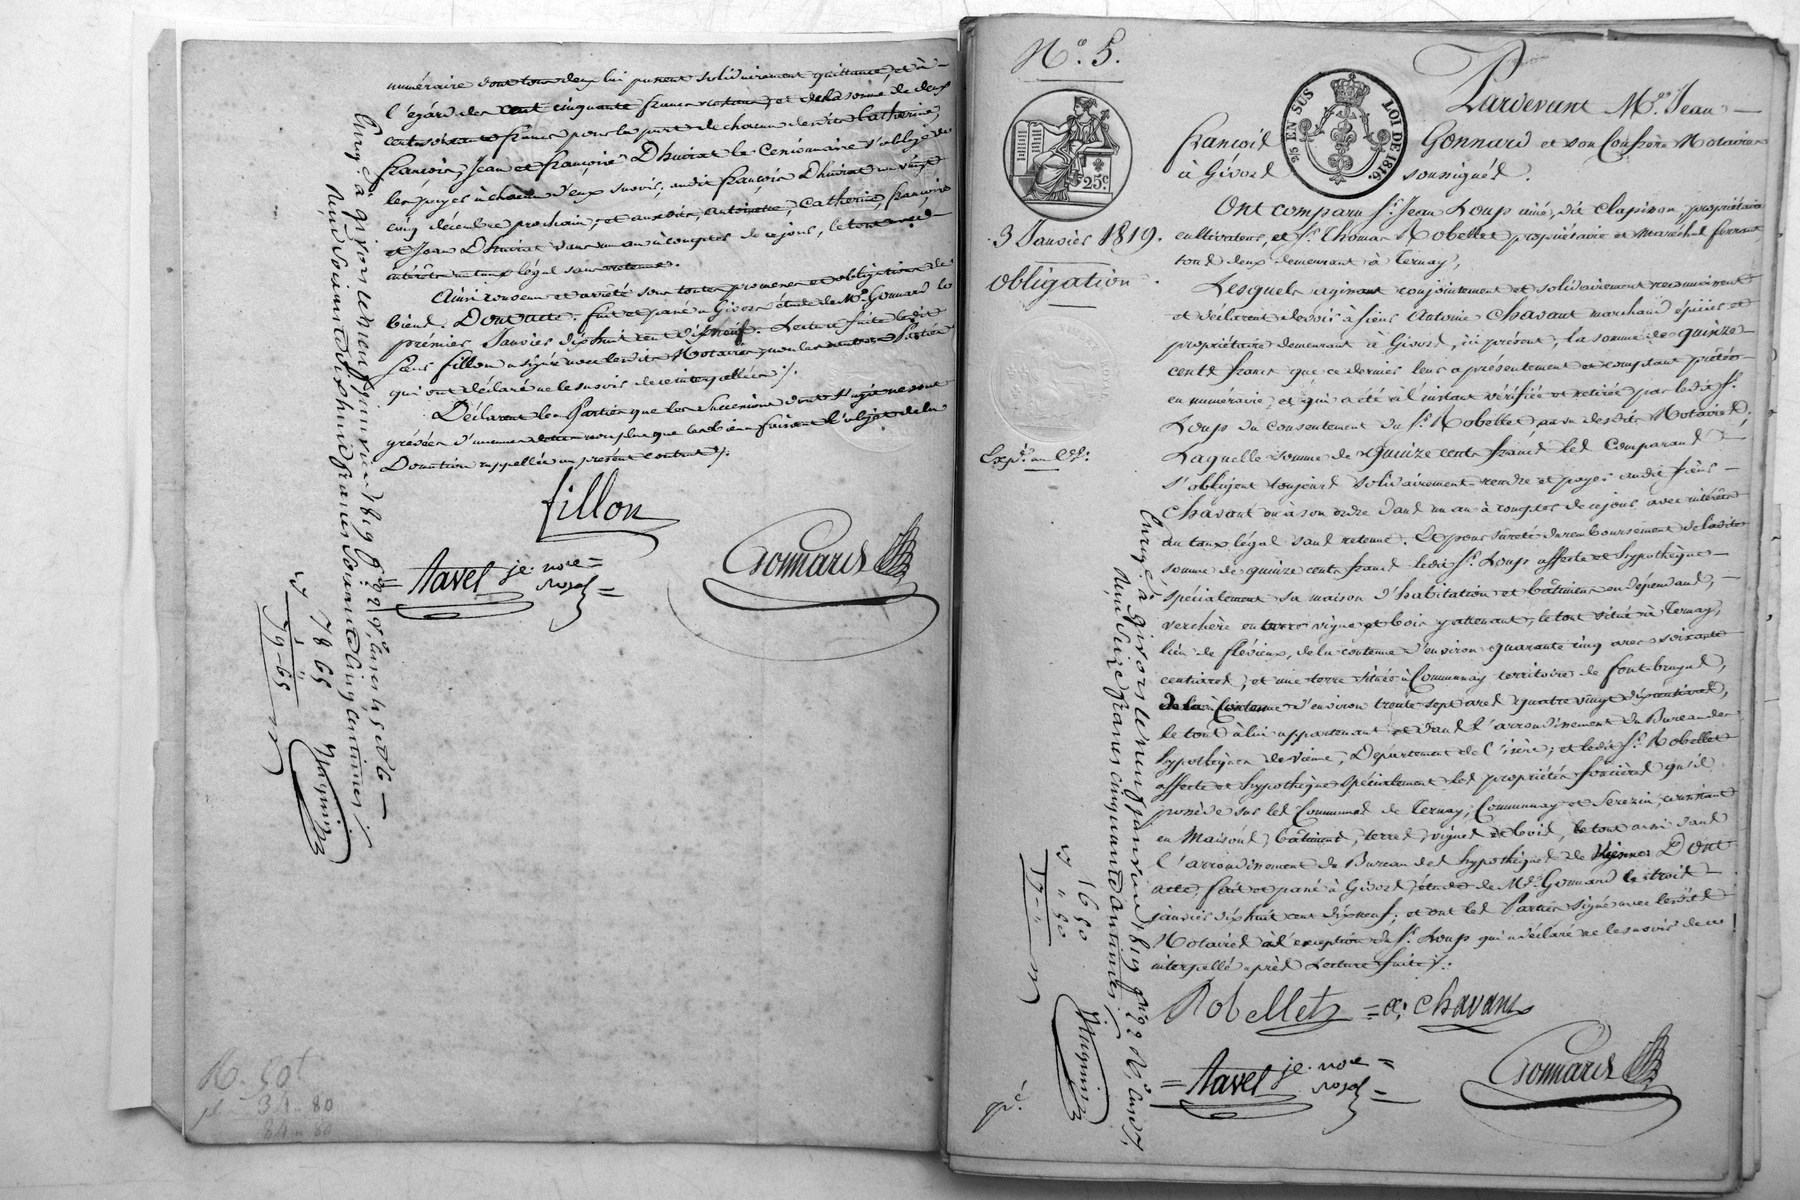 numéraire dont tous deux lui passent solidairement quittance, et à
l'égard des cent cinquante francs restans, et de la somme de deux
cent soixante francs pour la part de chacun desdits Catherine,
François, Jean et françoise Dhuirat le Cessionnaire s'oblige de
les payer à chacun d'eux savoir, audit françois Dhuirat au vingt
cinq décembre prochain, et auxdits Antoinette, Catherine, françoise
et Jean Dhuirat dans un an à compter de ce jour, le tout avec
intérêts au taux légal sans retenue.
Ainsi convenu et arrêté sous toutes promesses et obligations de
biens. Dont acte. fait et passé à Givors étude de Me. Gonnard le
premier Janvier dix huit cent dix neuf. Lecture faite ledit
sieur fillon a signé avec lesdits Notaires, non les autres Parties
qui ont déclaré ne le savoir de ce interpellées ./.
Déclarent les Parties que les Successions dont s'agit ne sont
grévées d'aucunes dettes non plus que les biens faisant l'objet de la
Donation rappellée au présent contrat ./.
fillon
Tavel je. nore
Gonnard
Enregé. à givors le neuf janvier 1819
Reçu soixante dix huit francs soixante cinq centimes ./.
78 65
79-65
R. 50
34-80
84-80
N° 5.
Pardevant Me. Jean
françois Gonnard et son Confrère Notaires
à Givors soussignés.
25 EN SUS LOI DE 1816.
25c.
3 Janvier 1819.
Obligation
Ont comparu Sr. Jean Loup ainé, dit Clapisson propriétaire
cultivateur, et Sr. Thomas Robellet propriétaire et maréchal ferrant,
tous deux demeurant à Ternay,
Lesquels agissant conjointement et solidairement reconnaissent
et déclarent devoir à sieur Antoine Chavant marchand épicier et
propriétaire demeurant à Givors, ici présent, la somme de quinze
cents francs que ce dernier leur a présentement et comptant prêtée
en numéraire, et qui a été à l'instant vérifiée et retirée par ledit Sr.
Loup du consentement du Sr. Robellet au vu desdits Notaires,
Expé. au
Laquelle somme de quinze cents francs les Comparants
s'obligent toujours solidairement rendre et payer audit sieur
Chavant ou à son ordre dans un an à compter de ce jour avec intérêts
au taux légal sans retenue. Et pour sûreté du remboursement de ladite
somme de quinze cents francs ledit Sr. Loup affecte et hypothèque
spécialement sa maison d'habitation et bâtimens en dépendans,
verchère en terre vigne et bois y attenant, le tout situé à Ternay,
lieu de flévieux, de la contenue d'environ quarante cinq ares soixante
centiares, et une terre située à Communay territoire de font-bruyas,
de la Contenue d'environ trente sept ares quatre vingt dix centiares,
le tout à lui appartenant et dans l'arrondissement du Bureau des
hypothèques de vienne, Département de l'isère; et ledit Sr. Robellet
affecte et hypothèque spécialement les propriétés foncières qu'il
possède sur les Communes de Ternay, Communay et Serezin, consistant
en Maisons, bâtimens, terres, vignes et bois, le tout aussi dans
l'arrondissement du Bureau des hypothèques de Vienne. Dont
acte, fait et passé à Givors, étude de Me. Gonnard le trois
janvier dix huit cent dix neuf; et ont les Parties signé avec lesdits
Notaires à l'exception du Sr. Loup qui a déclaré ne le savoir de ce
interpellé après Lecture faite ./.
Robelletz = a: chavant
Tavel je. nore
Gonnard
Enregé. à givors le neuf janvier 1819
Reçu seize francs cinquante centimes
16 50